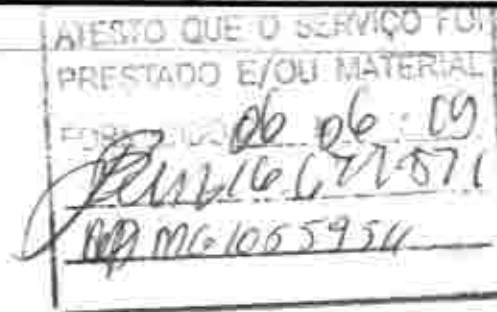 ATESTO QUE O SERVIÇO FOI
PRESTADO E/OU MATERIAL
06 06 09
16 677 571
MG 1065954